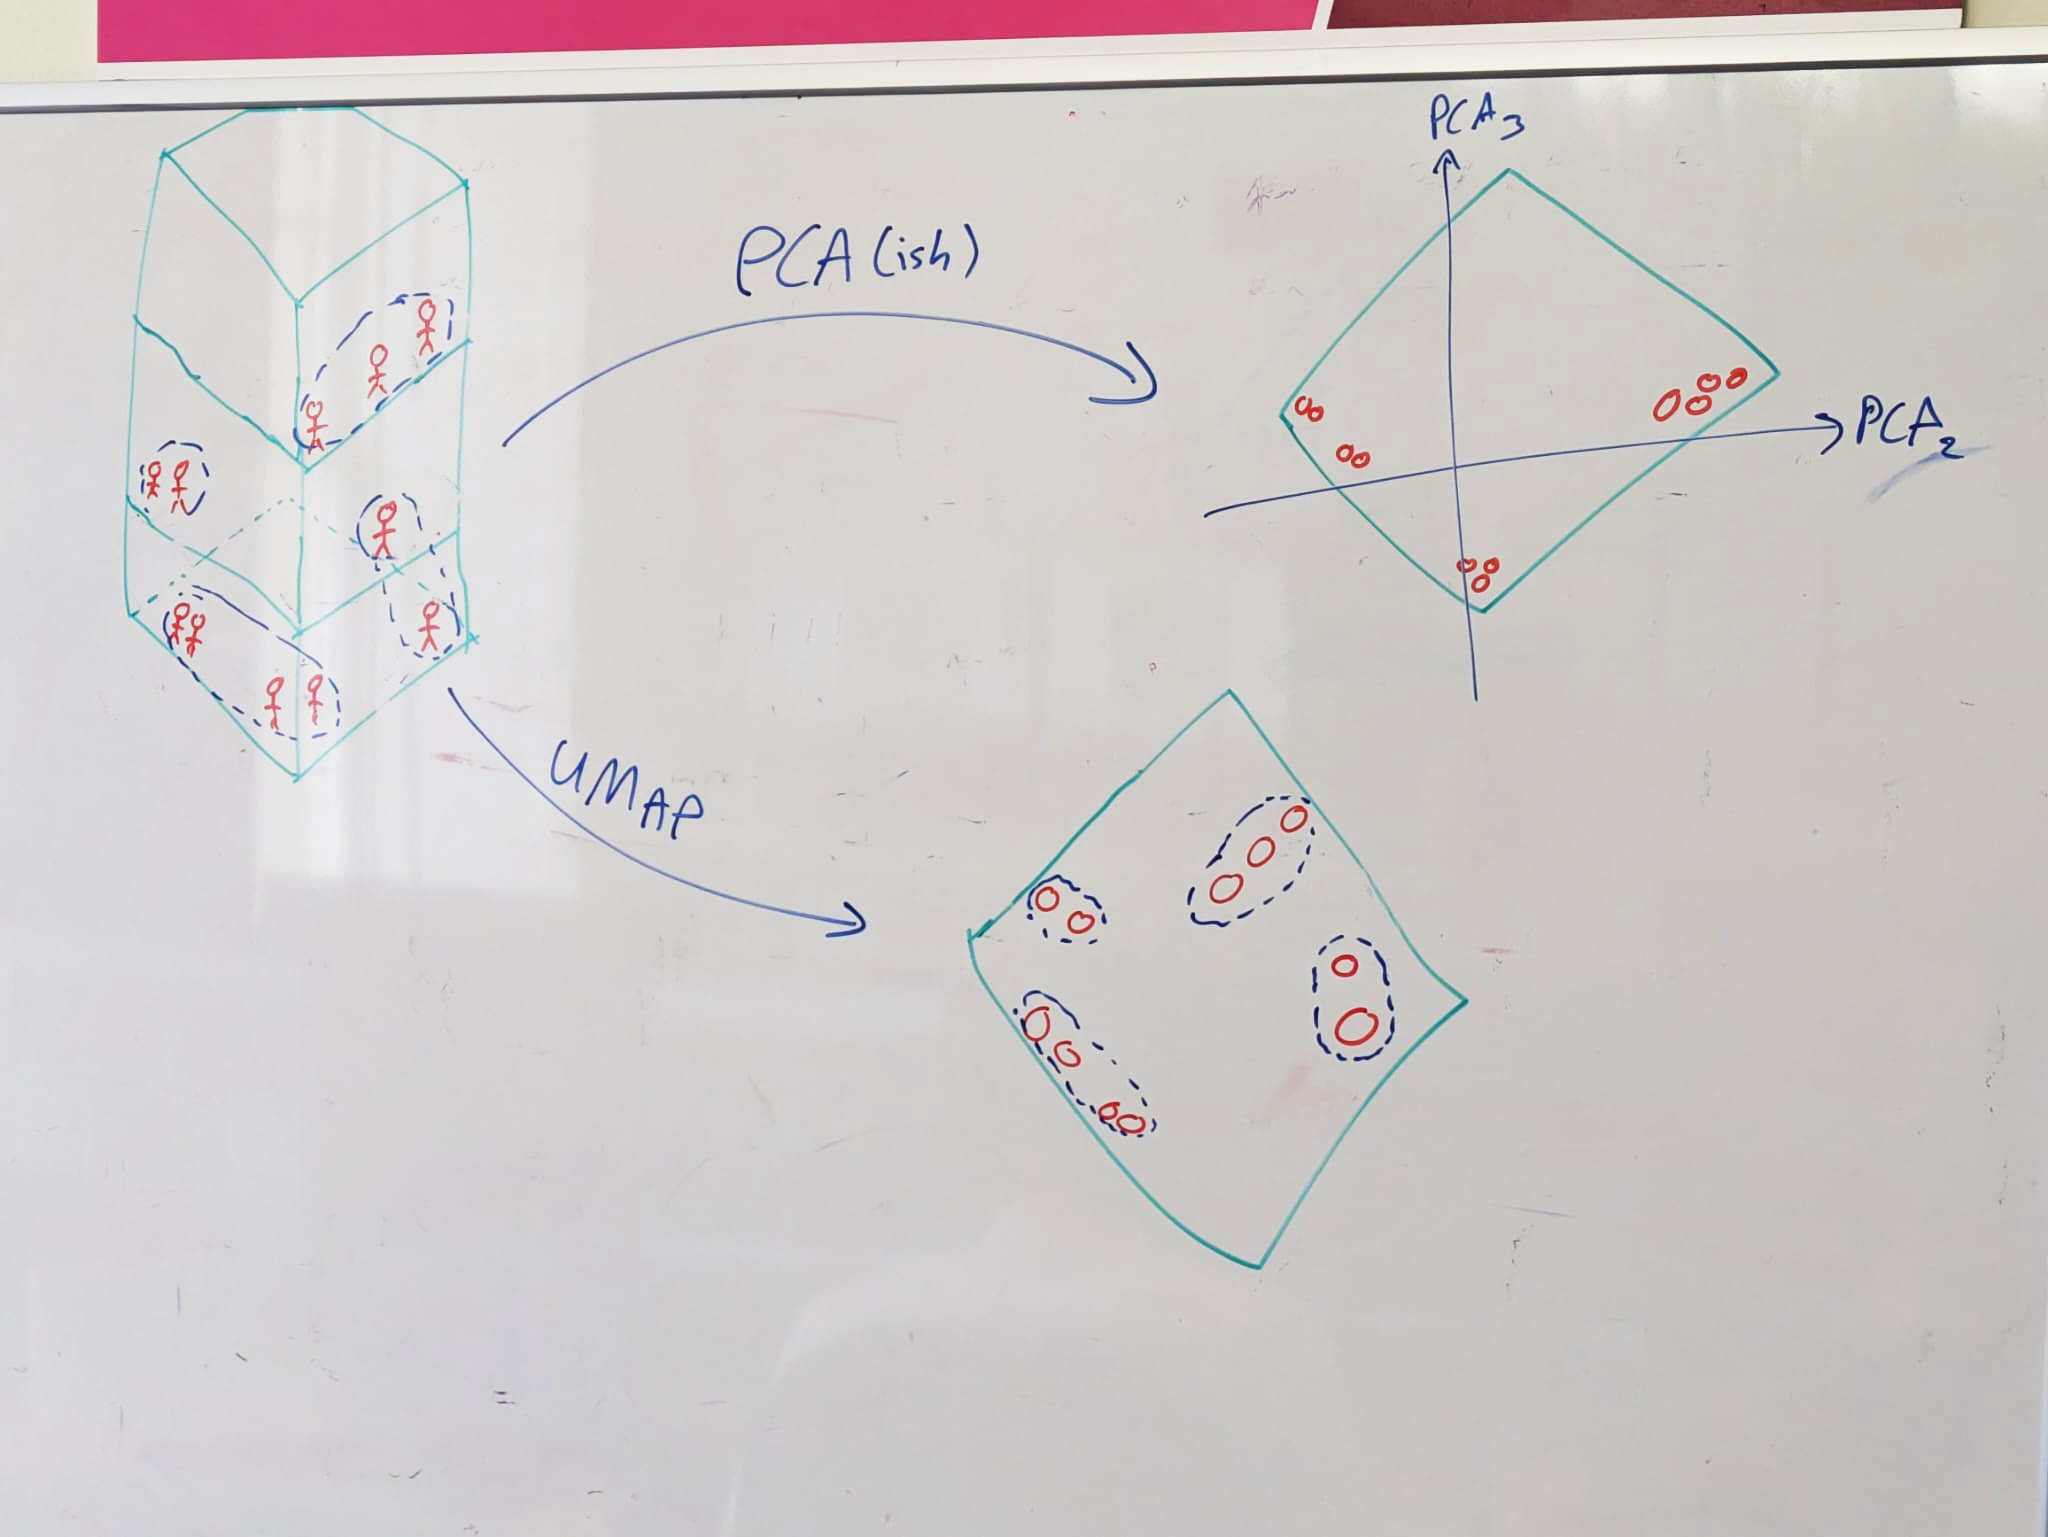 PCA (ish)
PCA₃
PCA₂
UMAP